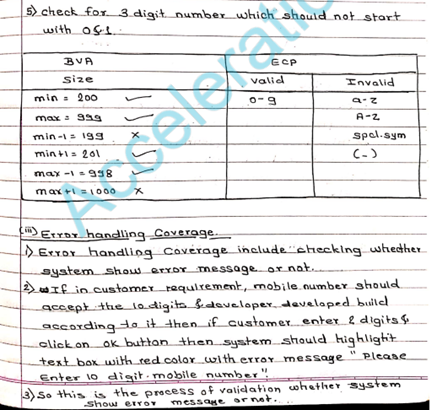 5) check for 3 digit number which should not start
with 0 & 1.
BVA ECP
Size Valid Invalid
min = 200 ✓ 0-9 a-z
max = 999 ✓ A-Z
min-1 = 199 × spcl.sym
min+1 = 201 ✓ (-)
max-1 = 998 ✓
max+1 = 1000 ×
(iii) Error handling Coverage.
1) Error handling Coverage include checking whether
system show error message or not.
2) If in customer requirement, mobile number should
accept the 10 digits & developer developed build
according to it then if customer enter 2 digits &
click on ok button then system should highlight
text box with red color with error message " Please
Enter 10 digit mobile number"
3) So this is the process of validation whether system
show error message or not.
Acceleratio